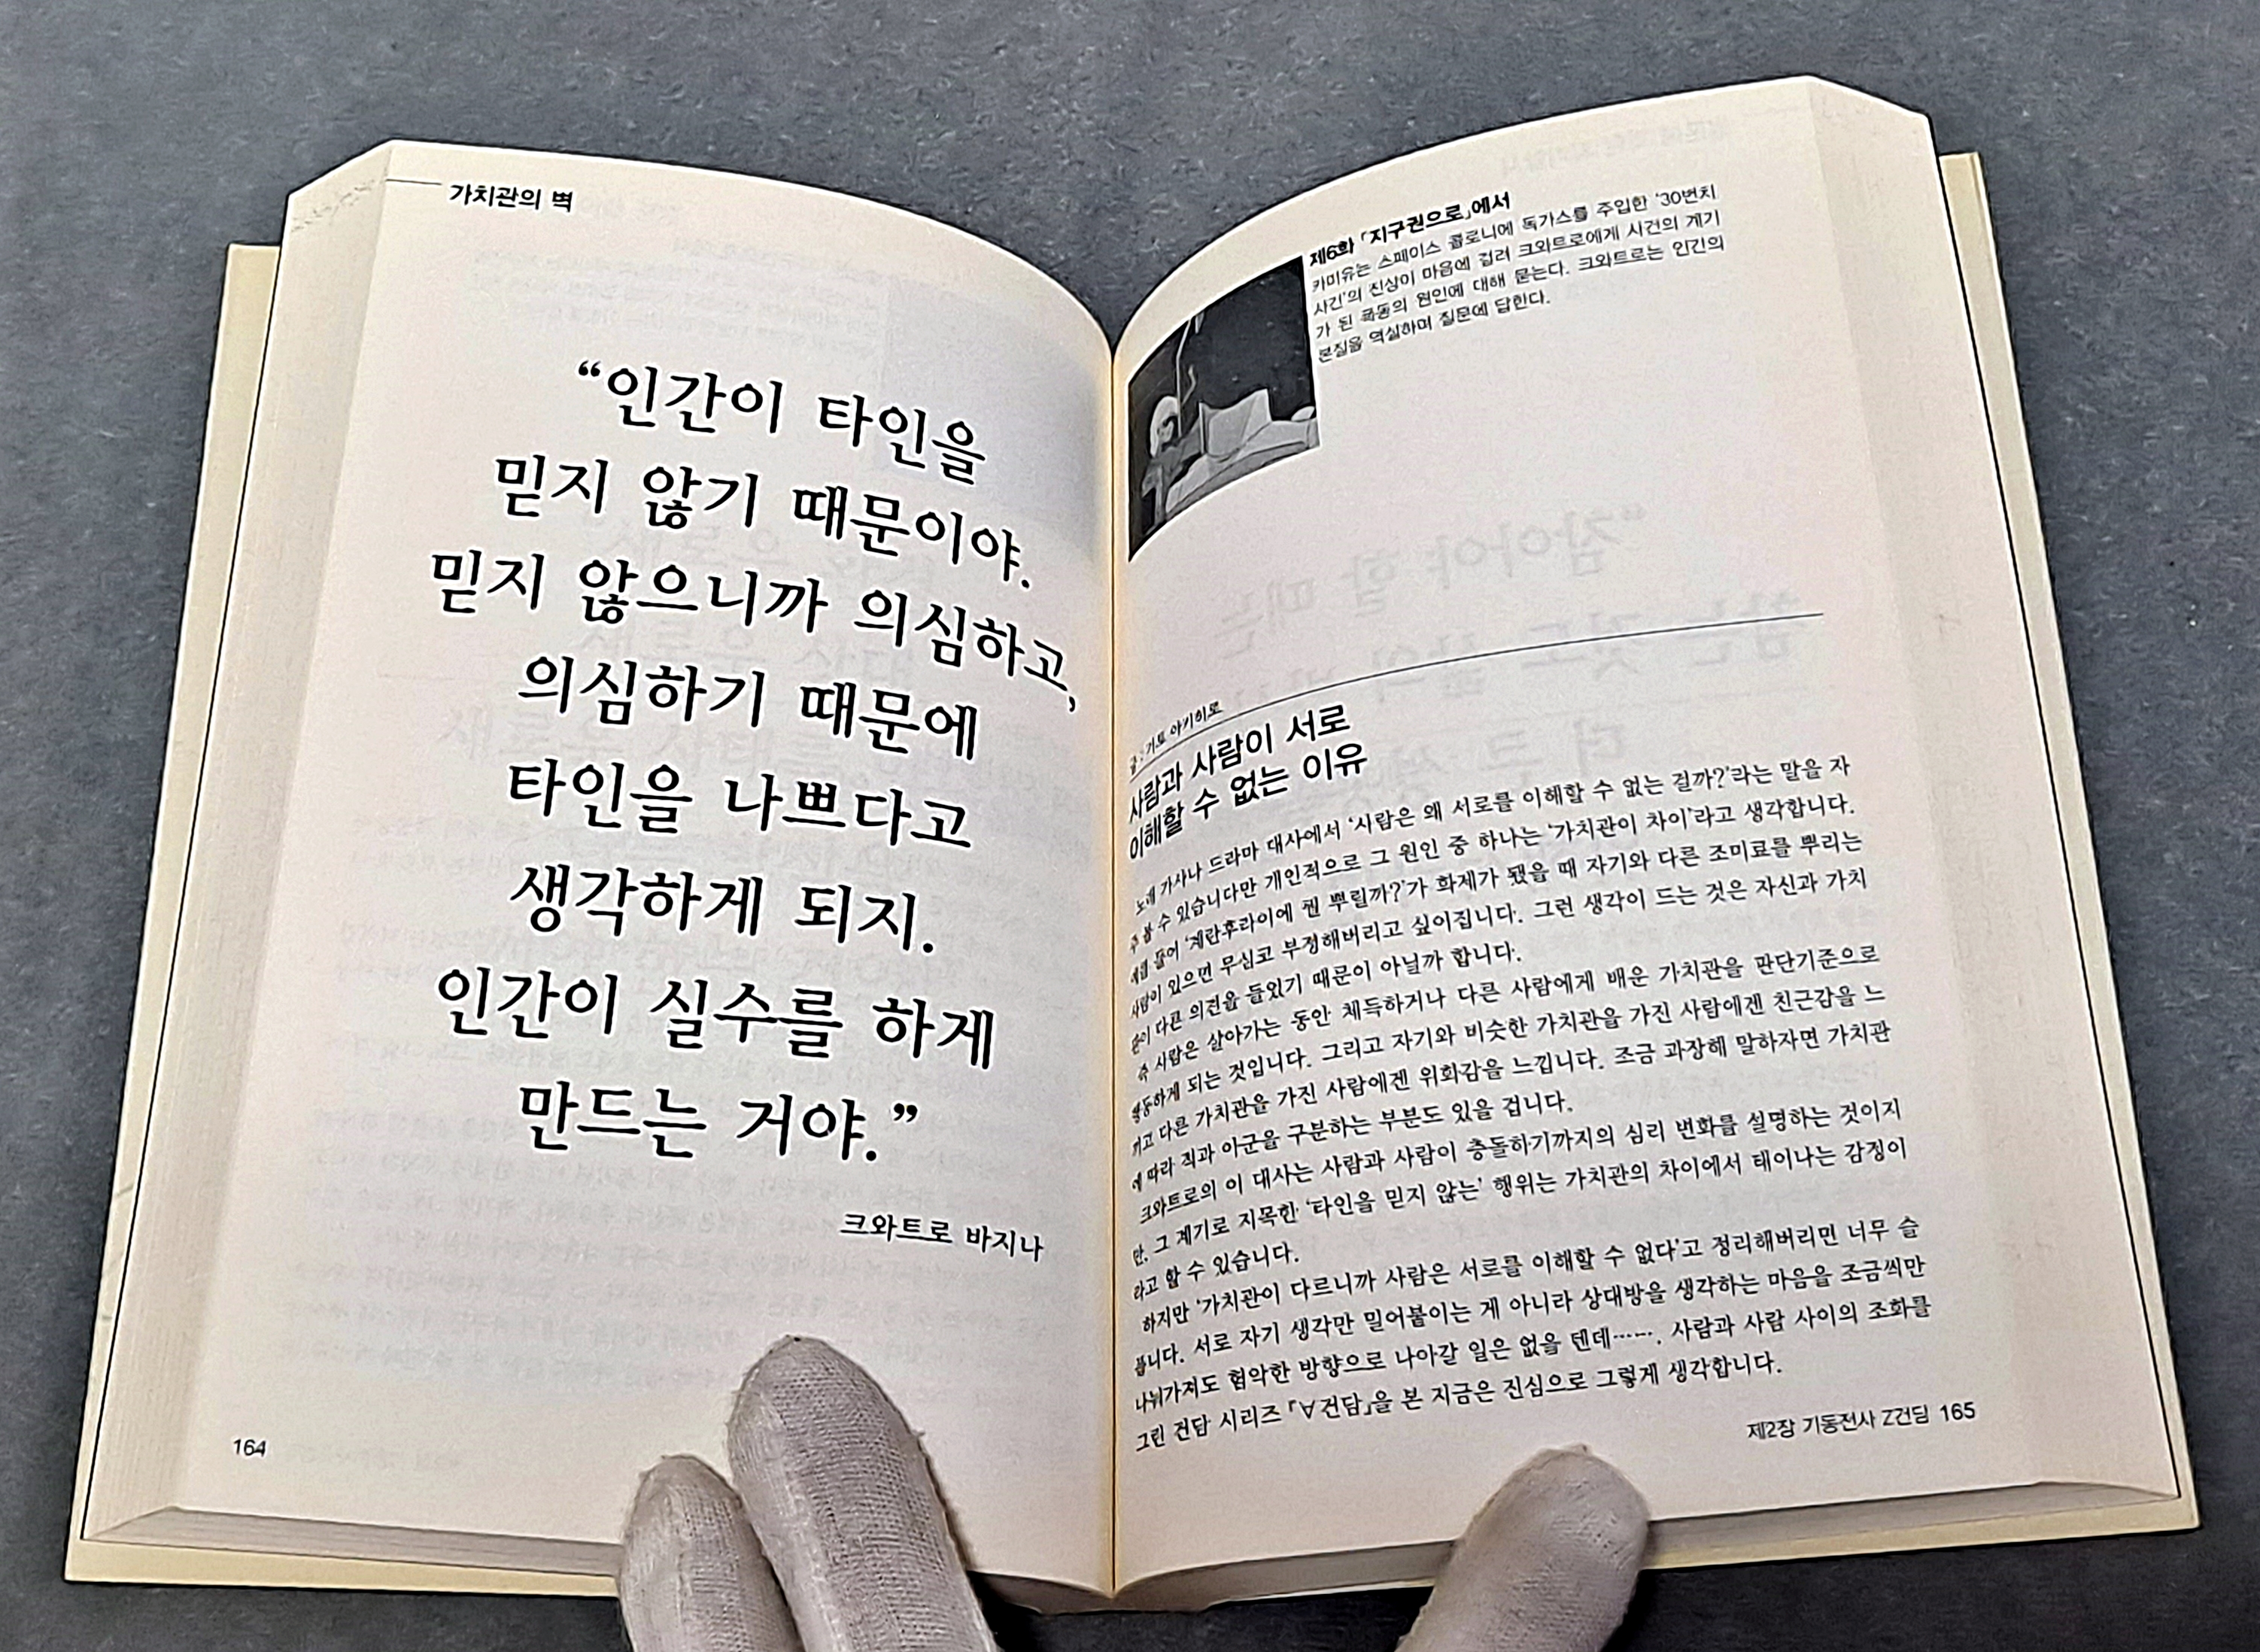 가치관의 벽
“인간이 타인을
믿지 않기 때문이야.
믿지 않으니까 의심하고,
의심하기 때문에
타인을 나쁘다고
생각하게 되지.
인간이 실수를 하게
만드는 거야.”
크와트로 바지나
164
제6화 「지구권으로」에서
카미유는 스페이스 콜로니에 독가스를 주입한 '30번지
사건'의 진상이 마음에 걸려 크와트로에게 사건의 계기
가 된 폭동의 원인에 대해 묻는다. 크와트로는 인간의
본질을 역설하며 질문에 답한다.
글 : 가토 아키히로
사람과 사람이 서로
이해할 수 없는 이유
노래 가사나 드라마 대사에서 '사람은 왜 서로를 이해할 수 없는 걸까?'라는 말을 자
주 볼 수 있습니다만 개인적으로 그 원인 중 하나는 '가치관이 차이'라고 생각합니다.
예를 들어 '계란후라이에 뭘 뿌릴까?'가 화제가 됐을 때 자기와 다른 조미료를 뿌리는
사람이 있으면 무심코 부정해버리고 싶어집니다. 그런 생각이 드는 것은 자신과 가치
관이 다른 의견을 들었기 때문이 아닐까 합니다.
즉 사람은 살아가는 동안 체득하거나 다른 사람에게 배운 가치관을 판단기준으로
행동하게 되는 것입니다. 그리고 자기와 비슷한 가치관을 가진 사람에겐 친근감을 느
끼고 다른 가치관을 가진 사람에겐 위화감을 느낍니다. 조금 과장해 말하자면 가치관
에 따라 적과 아군을 구분하는 부분도 있을 겁니다.
크와트로의 이 대사는 사람과 사람이 충돌하기까지의 심리 변화를 설명하는 것이지
만, 그 계기로 지목한 '타인을 믿지 않는' 행위는 가치관의 차이에서 태어나는 감정이
라고 할 수 있습니다.
하지만 '가치관이 다르니까 사람은 서로를 이해할 수 없다'고 정리해버리면 너무 슬
픕니다. 서로 자기 생각만 밀어붙이는 게 아니라 상대방을 생각하는 마음을 조금씩만
나눠가져도 험악한 방향으로 나아갈 일은 없을 텐데……. 사람과 사람 사이의 조화를
그린 건담 시리즈 『∀건담』을 본 지금은 진심으로 그렇게 생각합니다.
제2장 기동전사 Z건담 165